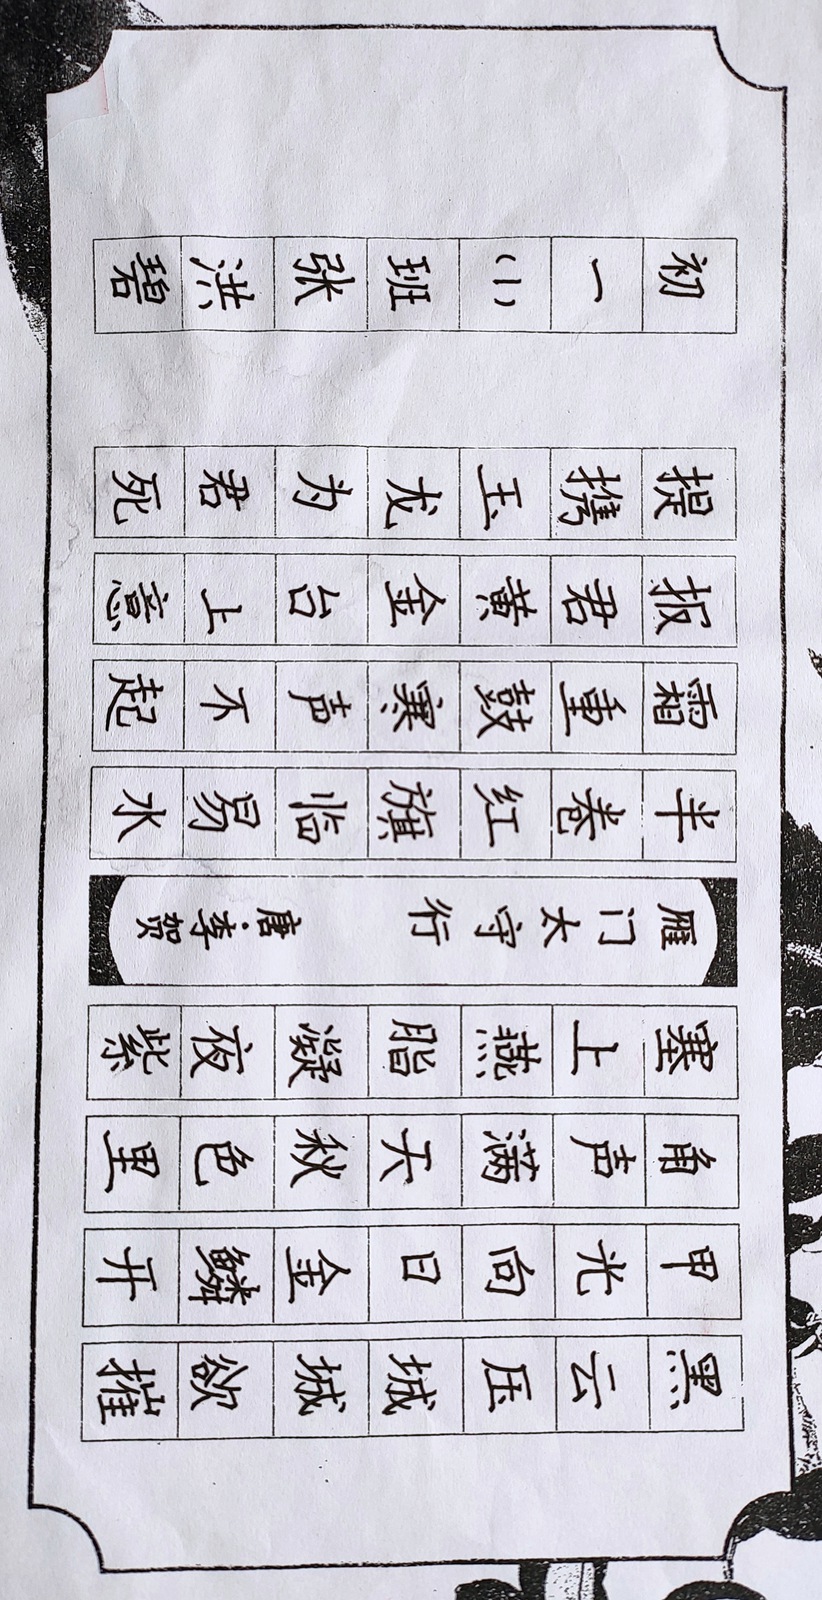 黑云压城城欲摧
甲光向日金鳞开
角声满天秋色里
塞上燕脂凝夜紫
雁门太守行 唐·李贺
半卷红旗临易水
霜重鼓寒声不起
报君黄金台上意
提携玉龙为君死
初一(一)班张洪碧